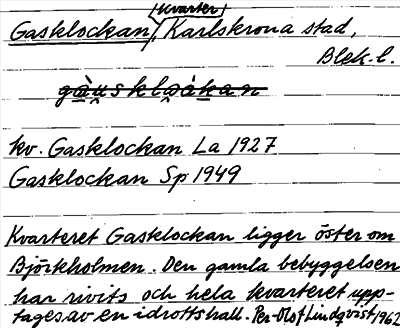 (kvarter)
Gasklockan, Karlskrona stad,
Blek. l.
kv. Gasklockan La 1927
Gasklockan Sp 1949
Kvarteret Gasklockan ligger öster om
Björkholmen. Den gamla bebyggelsen
har rivits och hela kvarteret upp-
tages av en idrottshall. Per-Olof Lindqvist, 1962